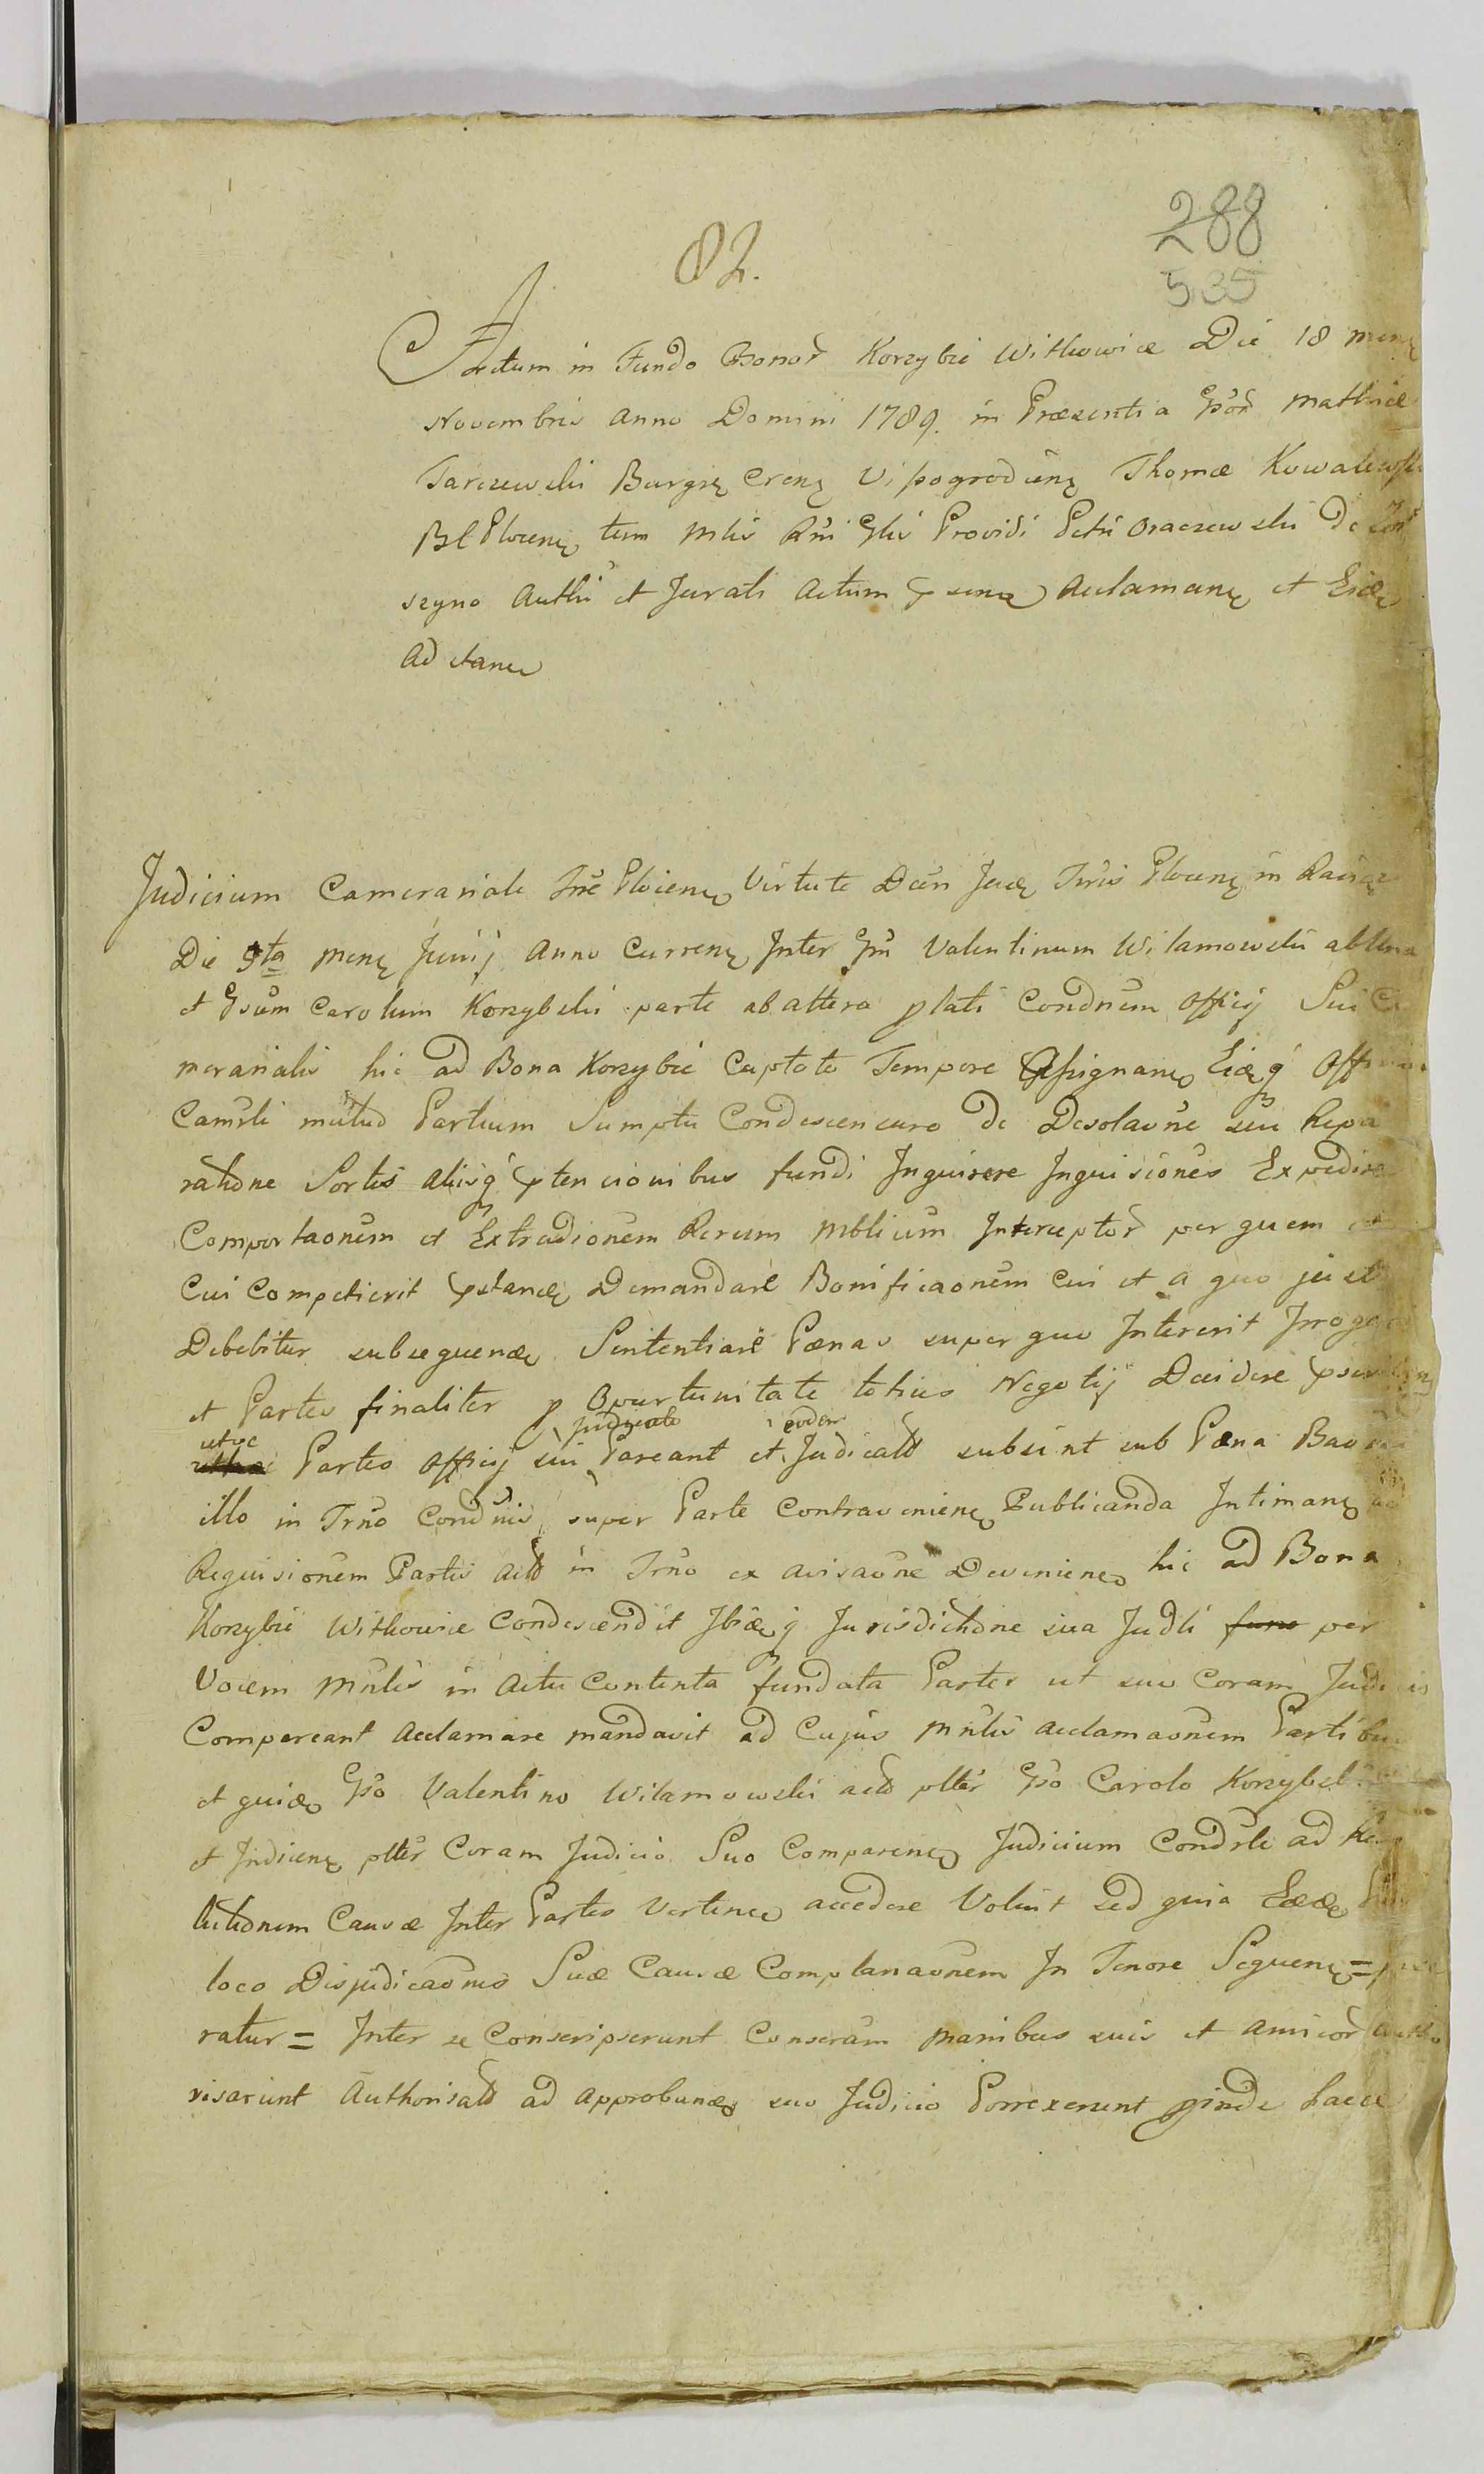 82.
288
535
Actum in Fundo Bonor Korzybie Witkowice Die 18 mens
Novembris Anno Domini 1789. in Præsentia Gsor Mathiæ
Tarczewski Burgrę Crenę Vipogrodienę Thomæ Kowalewski
Bl Plocenę tum Mlis Rni Glis Providi Petri Oraczewski de
szyno Authi et Jurati Actum psens Acclamanę et Eid
ad stanę
Judicium Camerariale Træ Plocienę Virtute Decri Jud Tris Plocenę in Raciąz
Die 9ta Mens Junij Anno Currenę Inter Gsm Valentinum Wilamowski ab Una
et Gsum Carolum Korzybski parte ab altera plati Condnum Officij Sui Ca
merarialis hic ad Bona Korzybie Captato Tempore Assignanę Eidq Officio
Camrli mutuo Partium Sumptu Condescensuro de Desolaone seu Repa
ratione Sortis aliisq ptencionibus fundi Inquirere Inquisiones Expedire
Comportaonem et Extradionem Rerum Mblium Interceptor per quem et
Cui Competierit pstandę Demandare Bonificaonem Cui et a quo justa
Debebitur subsequendę Sententiare Pænas super quo Intererit Irroga
et Partes finaliter p Oportunitate totius Negotij Decidere
utque Partes Officij sui Judicato Pareant et eodem Judicato subsint sub Pæna
illo in Trno Condnis super Parte Contravenienę Publicanda Intimanę ad
Requisionem Partis Act in Trno ex avisaone Devenienę hic ad Bona
Korzybie Witkowice Condescendit Ibidq Jurisdictione sua Judli ~~func~~ per
Vocem Mnlis in Actu Contenta fundata Partes ut suo Coram Judicio
Compareant Acclamare mandavit ad Cujus Mnlis acclamaonem Partibus
et quidę Gso Valentino Wilamowski act plter Gso Carolo Korzybski
et Indicenę plter Coram Judicio Suo Comparenę Judicium Condrle ad Reso
lutionem Causæ Inter Partes Vertenę accedere Voluit sed quia Eæd
loco Disjudicaonis Suæ Causæ Complanaonem In Tenore Sequenę =
ratur = Inter se Conscripserunt Conseram manibus suis et amicor autho
risarunt Authorisat ad approbandę suo Judicio Porrexerunt pinde hacce